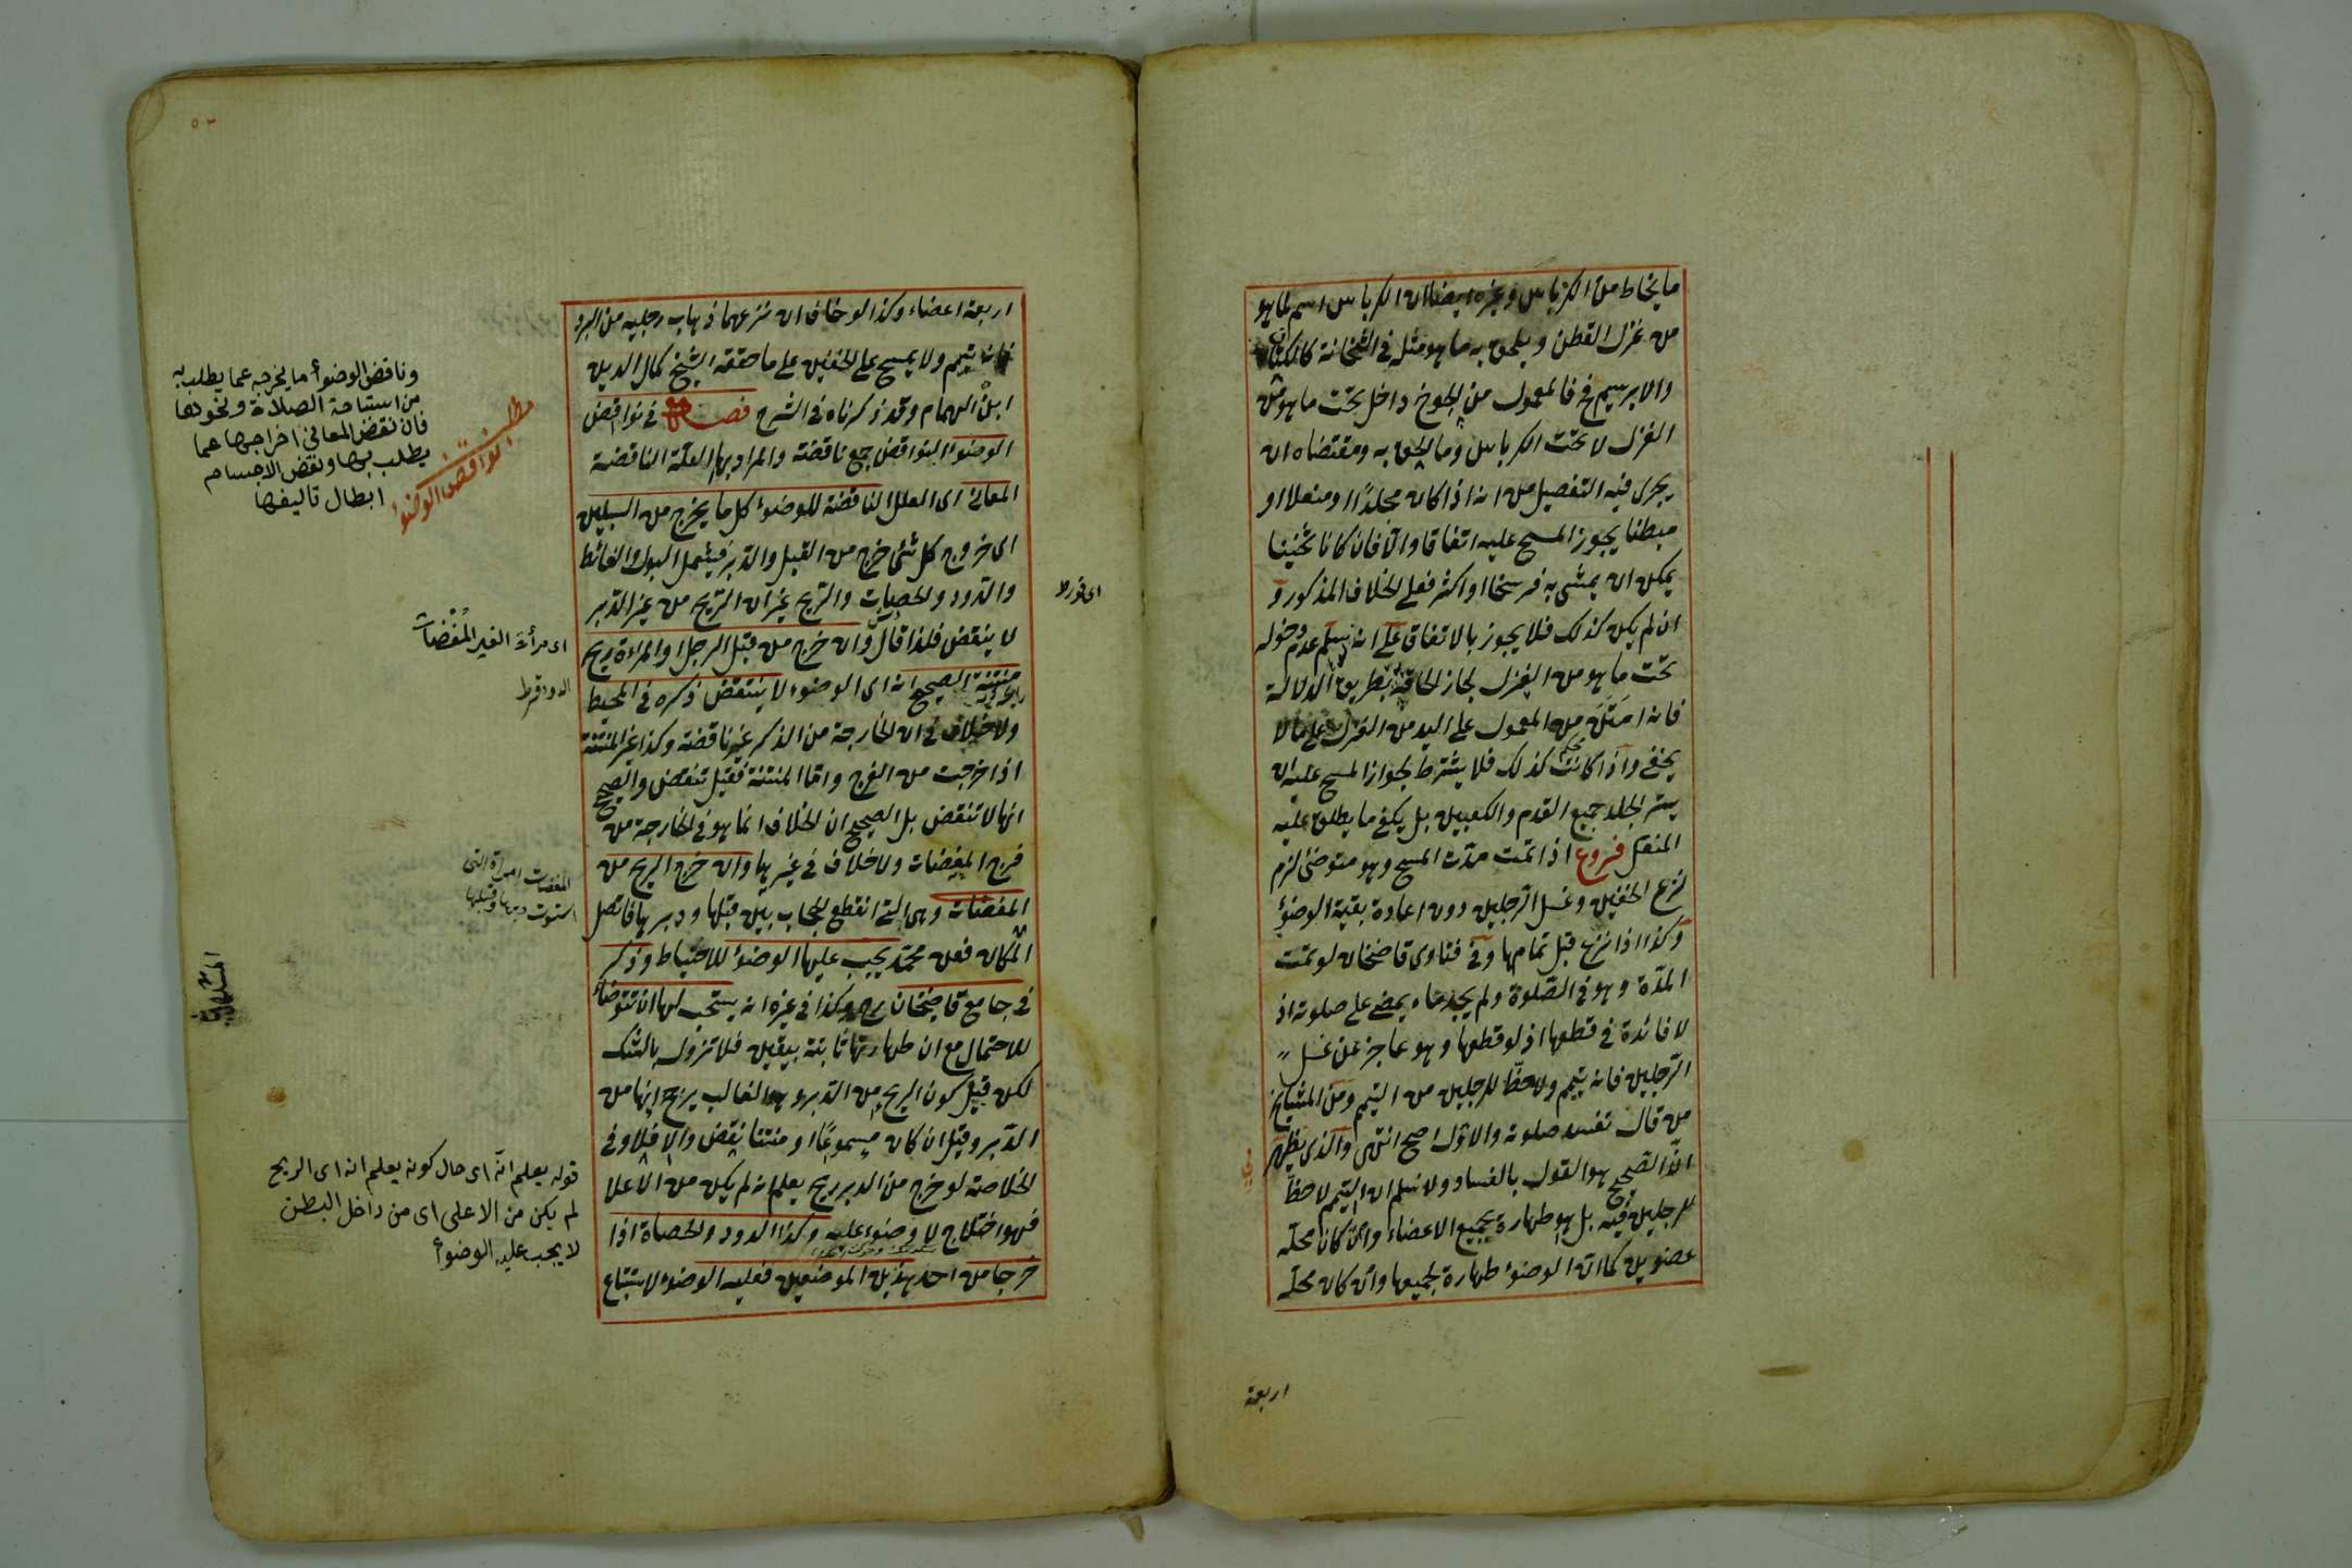 ما يخاط من الكرباس وغيره ايضا لان الكرباس اسم لما هو
من غزل القطن ويلحق به ما هو مثله في الثخانة كالكتان
والابريسم فح فالمعمول من الجوخ داخل تحت ما هو من
الغزل لا تحت الكرباس وما يلحق به ومقتضاه ان
يجرى فيه التفصيل من انه اذا كان مجلدًا او منعلا او
مبطنا يجوز المسح عليه اتفاقا والا فان كان ثخينا
يمكن ان يمشى به فرسخا او اكثر فعلى الخلاف المذكور و
ان لم يكن كذلك فلا يجوز بالاتفاق على انه يسلم عدم دخوله
تحت ما هو من الغزل لجاز الحاقه بطريق الدلالة
فانه امثل من المعمول على اليد من الغزل على ما لا
يخفى واذا كانت كذلك فلا يشترط لجواز المسح عليه ان
يستر الجلد جميع القدم والكعبين بل يكفى ما يطلق عليه
المنعل فروع اذا تمت مدت المسح وهو متوضئ لزم
نزع الخفين وغسل الرجلين دون اعادة بقية الوضوء
وكذا اذا نزع قبل تمامها وفى فتاوى قاضخان لو تمت
المدّة وهو فى الصّلوة ولم يجد ماء يمضى على صلوته اذ
لا فائدة فى قطعها اذ لو قطعها وهو عاجز عن غسل
الرّجلين فانه يتيمم ولا حظّ للرجلين من التيمم ومن المشايخ
من قال تفسد صلوته والاول اصح انتهى والذى يظهر
انّ الصحيح هو القول بالفساد ولا نسلم ان التيمم لا حظّ
للرجلين فيه بل هو طهارة لجميع الاعضاء وان كان محلّه
عضوين كما ان الوضوء طهارة لجميعها وان كان محلّه
اربعة
اربعة اعضاء وكذا لو خاف ان نزعهما ذهاب رجليه من البرد
فانه يتيمم ولا يمسح على الخفين على ما حققه الشيخ كمال الدين
ابن الهمام وقد ذكرناه فى الشرح فصل فى نواقض
الوضوء النواقض جمع ناقضة والمراد بها العلّة الناقضة
المعانى اى العلل الناقضة للوضوء كل ما يخرج من السبيلين
اى خروج كل شئ خرج من القبل والدّبر فيشمل البول والغائط
والدّود والحصيات والرّيح غير ان الرّيح من غير الدّبر
لا ينقض فلذا قال وان خرج من قبل الرجل او المراءة ريح
منتنة الصحيح انه اى الوضوء لا ينتقض ذكره فى المحيط
ولا خلاف فى ان الخارجة من الذكر غير ناقضة وكذا غير المنتنة
اذا خرجت من الفرج وامّا المنتنة فقيل تنقض والصحيح
انها لا تنقض بل الصحيح ان الخلاف انما هو فى الخارجة من
فرج المفضات ولا خلاف فى غيرها وان خرج الريح من
المفضات وهى التى انقطع الحجاب بين قبلها ودبرها فاتصل
المكان فعن محمّد يجب عليها الوضوء للاحتياط وذكر
فى جامع قاضخان رح وكذا فى غيره انه يستحب لها ان تتوضأ
للاحتمال مع ان طهارتها ثابتة بيقين فلا تزول بالشك
لكن قيل كون الريح من الدّبر هو الغالب يرجح انها من
الدّبر وقيل ان كان مسموعًا او منتنا ينقض والا فلا وفى
الخلاصة لو خرج من الدبر ريح يعلم انه لم يكن من الاعلا
فهو اختلاج لا وضوء عليه وكذا الدود والحصاة اذا
خرجا من احد هذين الموضعين فعليه الوضوء لاستتباع
وناقض الوضوأ ما يخرجه عما يطلب به
من استباحة الصلاة ونحوها
فان نقض المعانى اخراجها عما
يطلب بها ونقض الاجسام
ابطال تاليفها
مطلب
نواقض الوضوء
اى مرأت الغير المفضات
المفضات امراة التى
استوت دبرها وقبلها
قوله يعلم انّه اى حال كونه يعلم انه اى الريح
لم يكن من الاعلى اى من داخل البطن
لا يجب عليه الوضوأ